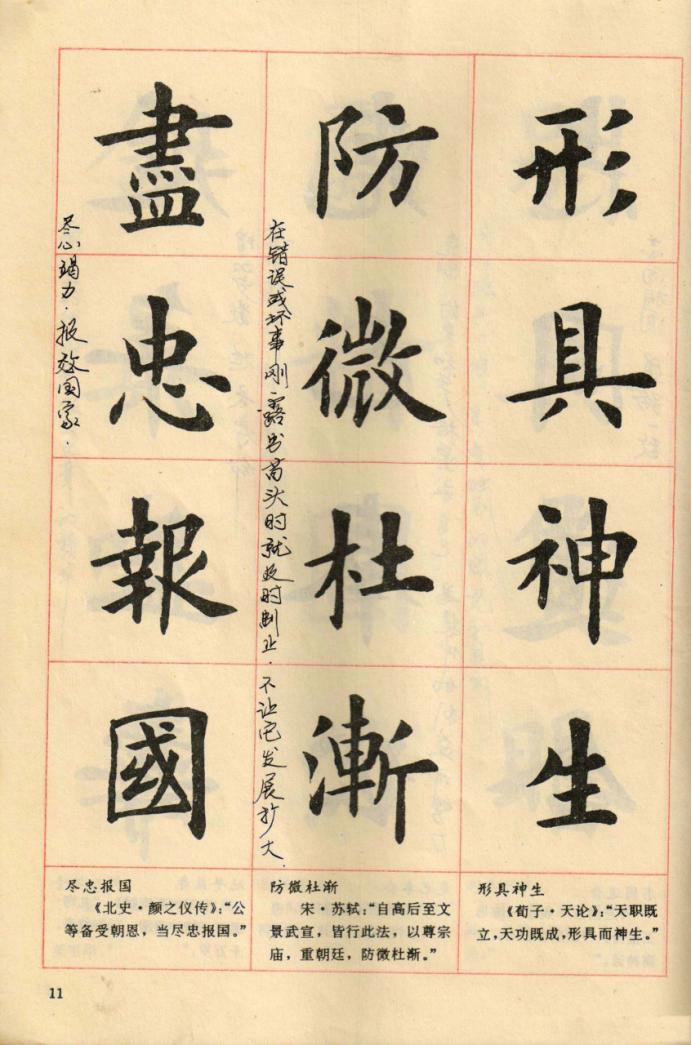 形具神生
防微杜漸
盡忠報國
在错误或坏事刚露出苗头时就及时制止.不让它发展扩大.
尽心竭力.报效国家.
形具神生
《荀子·天论》：“天职既
立，天功既成，形具而神生。”
防微杜渐
宋·苏轼：“自高后至文
景武宣，皆行此法，以尊宗
庙，重朝廷，防微杜渐。”
尽忠报国
《北史·颜之仪传》：“公
等备受朝恩，当尽忠报国。”
11